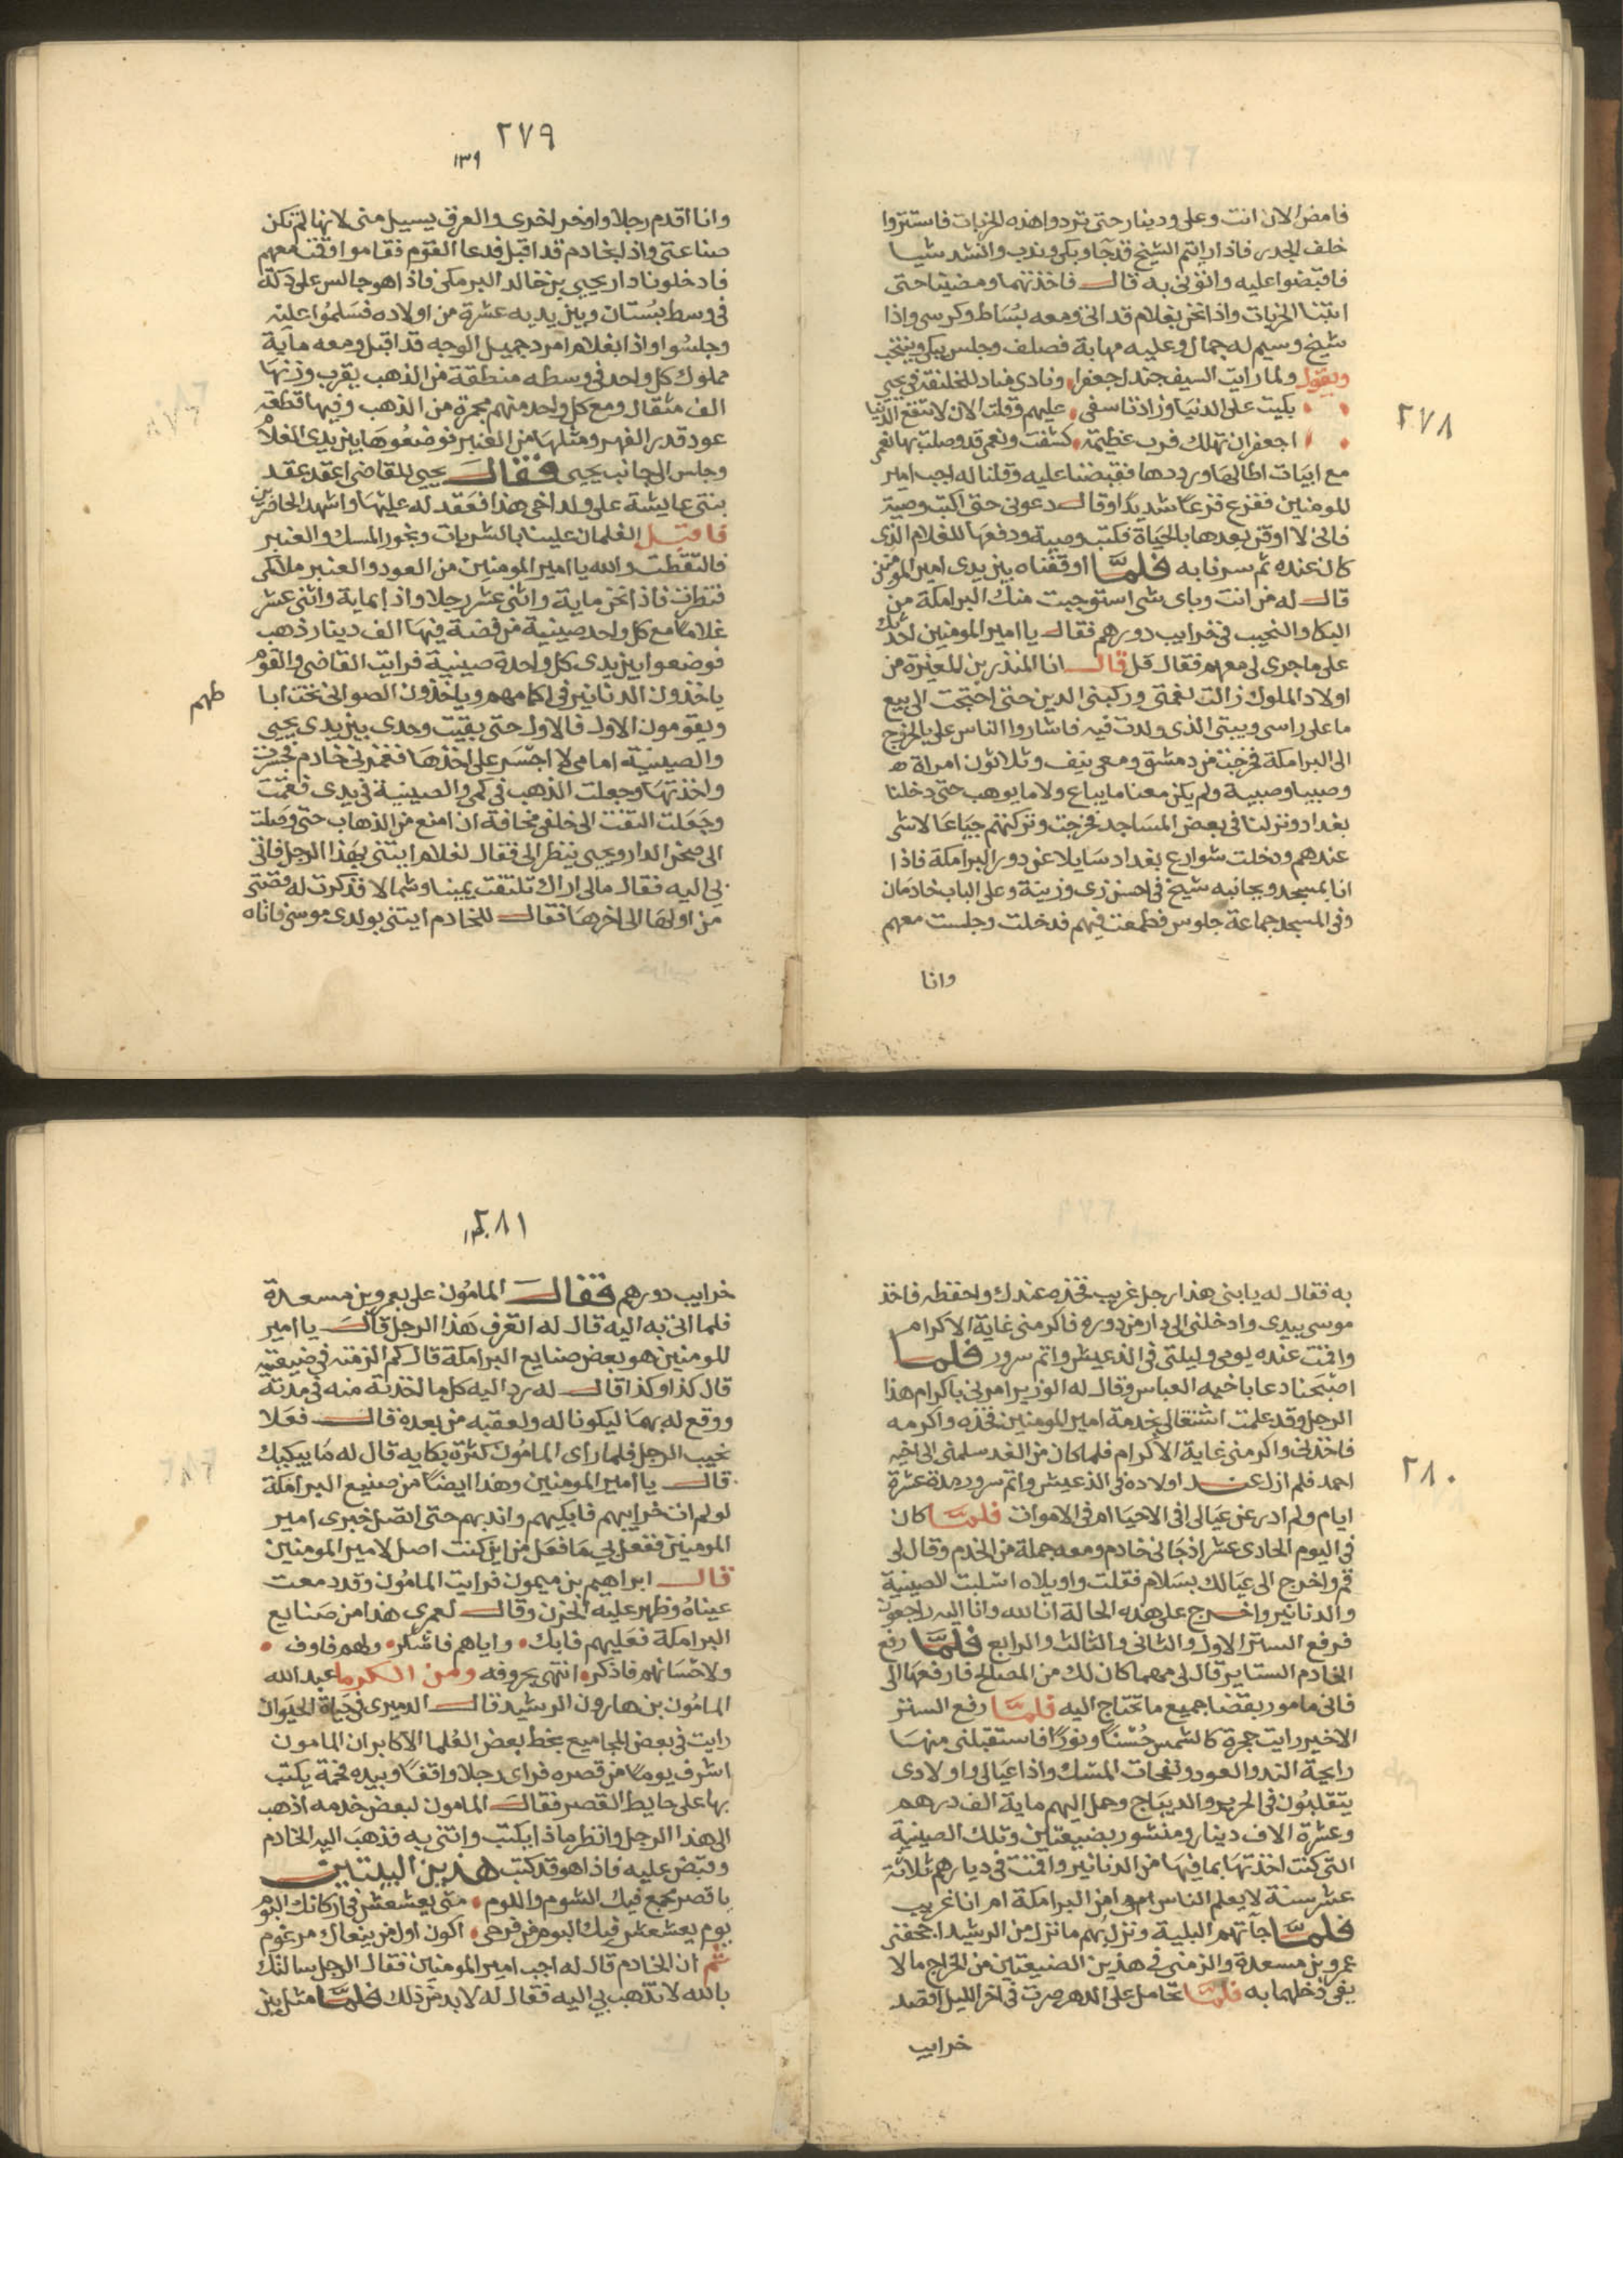 ٢٧٨
فامض الان انت وعلى ودينار حتى تردوا هذه الخربات فاستتروا
خلف الجدر فاذا رايتم الشيخ قد جآ وبكى وندب وانشد شيا
فاقبضوا عليه واتوني به قال فاخذتهما ومضينا حتى
اتينا الخربات واذا نحن بغلام قد اتى ومعه بساط وكرسى واذا
شيخ وسيم له جمال وعليه مهابة فصلف وجلس يبكى وينتحب
ويقول ولما رايت السيف جندل جعفرا ونادى مناد للخليفة فى يحيى
بكيت على الدنيا وزاد تاسفى عليهم وقلت الان لا تنفع الدنيا
اجعفر ان تهلك فرب عظيمة كشفت ونعمى قد وصلت بها نعمى
مع ابيات اطالها ورددها فقبضنا عليه وقلنا له اجب امير
المومنين ففزع فزعا شديدا وقال دعونى حتى اكتب وصية
فانى لا اوقن بعدها بالحياة فكتب وصية ودفعها للغلام الذى
كان عنده ثم سرنا به فلما اوقفناه بين يدى امير المومنين
قال له من انت وباى شى استوجبت منك البرامكة من
البكا والنحيب فى خرايب دورهم فقال يا امير المومنين احدثك
على ما جرى لى معهم فقال قل قال انا المنذر بن المغيرة من
اولاد الملوك زالت نعمتى وركبنى الدين حتى احتجت الى بيع
ما على راسى وبيتى الذى ولدت فيه فاشاروا الناس على بالخروج
الى البرامكة فخرجت من دمشق ومعى نيف وثلاثون امراة
وصبيا وصبية ولم يكن معنا ما يباع ولا ما يوهب حتى دخلنا
بغداد ونزلنا فى بعض المساجد فخرجت وتركتهم جياعا لا شى
عندهم ودخلت شوارع بغداد سايلا عن دور البرامكة فاذا
انا بمسجد وبجانبه شيخ فى احسن زى وزينة وعلى الباب خادمان
وفى المسجد جماعة جلوس فطمعت فيهم فدخلت وجلست معهم
وانا
٢٧٩
١٣٩
وانا اقدم رجلا واوخر اخرى والعرق يسيل منى لانها لم تكن
صناعتى واذا بخادم قد اقبل فدعا القوم فقاموا وقمت معهم
فادخلونا دار يحيى بن خالد البرمكى فاذا هو جالس على دكة
فى وسط بستان وبين يديه عشرة من اولاده فسلموا عليه
وجلسوا واذا بغلام امرد جميل الوجه قد اقبل ومعه ماية
مملوك كل واحد فى وسطه منطقة من الذهب يقرب وزنها
الف مثقال ومع كل واحد منهم مجمرة من الذهب وفيها قطعة
عود قدر الفهر ومثلها من العنبر فوضعوها بين يدى الغلام
وجلس الى جانب يحيى فقال يحيى للقاضى اعقد عقد
بنتى عايشة على ولد اخى هذا فعقد له عليها واشهد الحاضرين
فاقبل الغلمان علينا بالشربات وبخور المسك والعنبر
فالتقطت والله يا امير المومنين من العود والعنبر ملا كمى
فنظرت فاذا نحن ماية واثنى عشر رجلا واذا بماية واثنى عشر
غلاما مع كل واحد صينية من فضة فيها الف دينار ذهب
فوضعوا بين يدى كل واحدة صينية فرايت القاضى والقوم
ياخذون الدنانير فى اكمامهم وياخذون الصوانى تحت ابا
طهم
ويقومون الاول فالاول حتى بقيت وحدى بين يدى يحيى
والصينية امامى لا اجسر على اخذها فغمزنى خادم فجسرت
واخذتها وجعلت الذهب فى كمى والصينية فى يدى فقمت
وجعلت التفت الى خلفى مخافة ان امنع من الذهاب حتى وصلت
الى صحن الدار ويحيى ينظر الى فقال لغلام ايتنى بهذا الرجل فاتى
بى اليه فقال مالى اراك تلتفت يمينا وشمالا فذكرت له قصتى
من اولها الى اخرها فقال للخادم ايتنى بولدى موسى فاتاه
٢٨٠
به فقال له يا بنى هذا رجل غريب فخذه عندك واحفظه فاخذ
موسى بيدى وادخلنى الى دار من دوره فاكرمنى غاية الاكرام
واقمت عنده يومى وليلتى فى الذ عيش واتم سرور فلما
اصبحنا دعا باخيه العباس وقال له الوزير امرنى باكرام هذا
الرجل وقد علمت اشتغالى بخدمة امير المومنين فخذه واكرمه
فاخذنى واكرمنى غاية الاكرام فلما كان من الغد سلمنى الى اخيه
احمد فلم ازل عند اولاده فى الذ عيش واتم سرور مدة عشرة
ايام ولم ادر عن عيالى افى الاحيا ام فى الاموات فلما كان
فى اليوم الحادى عشر اذ جانى خادم ومعه جملة من الخدم وقال لى
قم واخرج الى عيالك بسلام فقلت واويلاه اسلبت الصينية
والدنانير واخرج على هذه الحالة انا لله وانا اليه راجعون
فرفع الستر الاول والثانى والثالث والرابع فلما رفع
الخادم الستاير قال لى مهما كان لك من المصالح فارفعها الى
فانى مامور بقضا جميع ما تحتاج اليه فلما رفع الستر
الاخير رايت حجرة كالشمس حسنا ونورا فاستقبلنى منها
رايحة الند والعود ونفحات المسك واذا عيالى واولادى
يتقلبون فى الحرير والديباج وحمل اليهم ماية الف درهم
وعشرة الاف دينار ومنشور بضيعتين وتلك الصينية
التى كنت اخذتها بما فيها من الدنانير واقمت فى ديارهم ثلاثة
عشر سنة لا يعلم الناس امن البرامكة ام انا غريب
فلما جآتهم البلية ونزل بهم ما نزل من الرشيد اجحفنى
عمرو بن مسعدة والزمنى فى هذين الضيعتين من الخراج مالا
يفى دخلهما به فلما تحامل على الدهر صرت فى اخر الليل اقصد
خرايب
٢٨١
خرايب دورهم فقال المامون على بعمرو بن مسعدة
فلما اتى به اليه قال له اتعرف هذا الرجل قال يا امير
المومنين هو بعض صنايع البرامكة قال كم الزمته فى ضيعته
قال كذا وكذا قال له رد اليه كل ما اخذته منه فى مدته
ووقع له بهما ليكونا له ولعقبه من بعده قال فعلا
نحيب الرجل فلما راى المامون كثرة بكايه قال له ما يبكيك
قال يا امير المومنين وهذا ايضا من صنيع البرامكة
لو لم ات خرايبهم فابكيهم واندبهم حتى اتصل خبرى امير
المومنين ففعل بى ما فعل من اين كنت اصل لامير المومنين
قال ابراهيم بن ميمون فرايت المامون وقد دمعت
عيناه وظهر عليه الحزن وقال لعمرى هذا من صنايع
البرامكة فعليهم فابك واياهم فاشكر ولهم فاوف
ولاحسانهم فاذكر انتهى بحروفه ومن الكرما عبد الله
المامون بن هارون الرشيد قال الدميرى فى حياة الحيوان
رايت فى بعض المجاميع بخط بعض العلما الاكابر ان المامون
اشرف يوما من قصره فراى رجلا واقفا وبيده فحمة يكتب
بها على حايط القصر فقال المامون لبعض خدمه اذهب
الى هذا الرجل وانظر ماذا يكتب وائتنى به فذهب اليه الخادم
وقبض عليه فاذا هو قد كتب هذين البيتين
يا قصر جمع فيك الشوم واللوم متى يعشعش فى اركانك البوم
يوم يعشعش فيك البوم من فرحى اكون اول من ينعاك مرغوم
ثم ان الخادم قال له اجب امير المومنين فقال الرجل سالتك
بالله لا تذهب بى اليه فقال له لا بد من ذلك فلما مثل بين